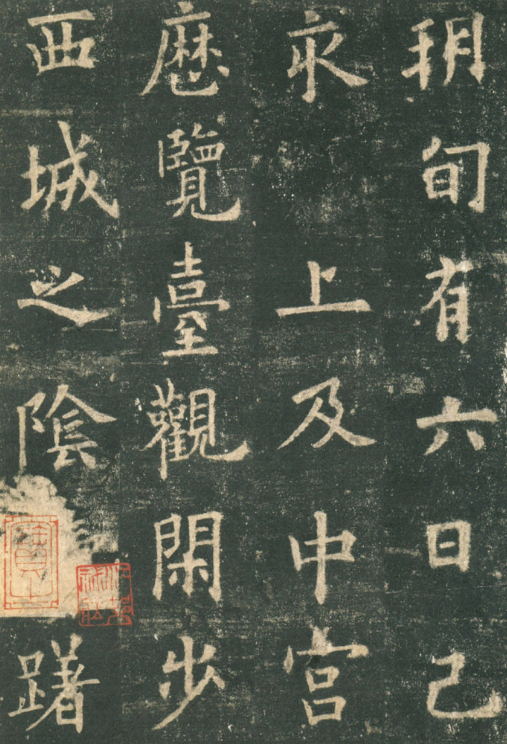 玥旬有六日己
亥上及中宫
歷覽臺觀閑步
西城之陰躇